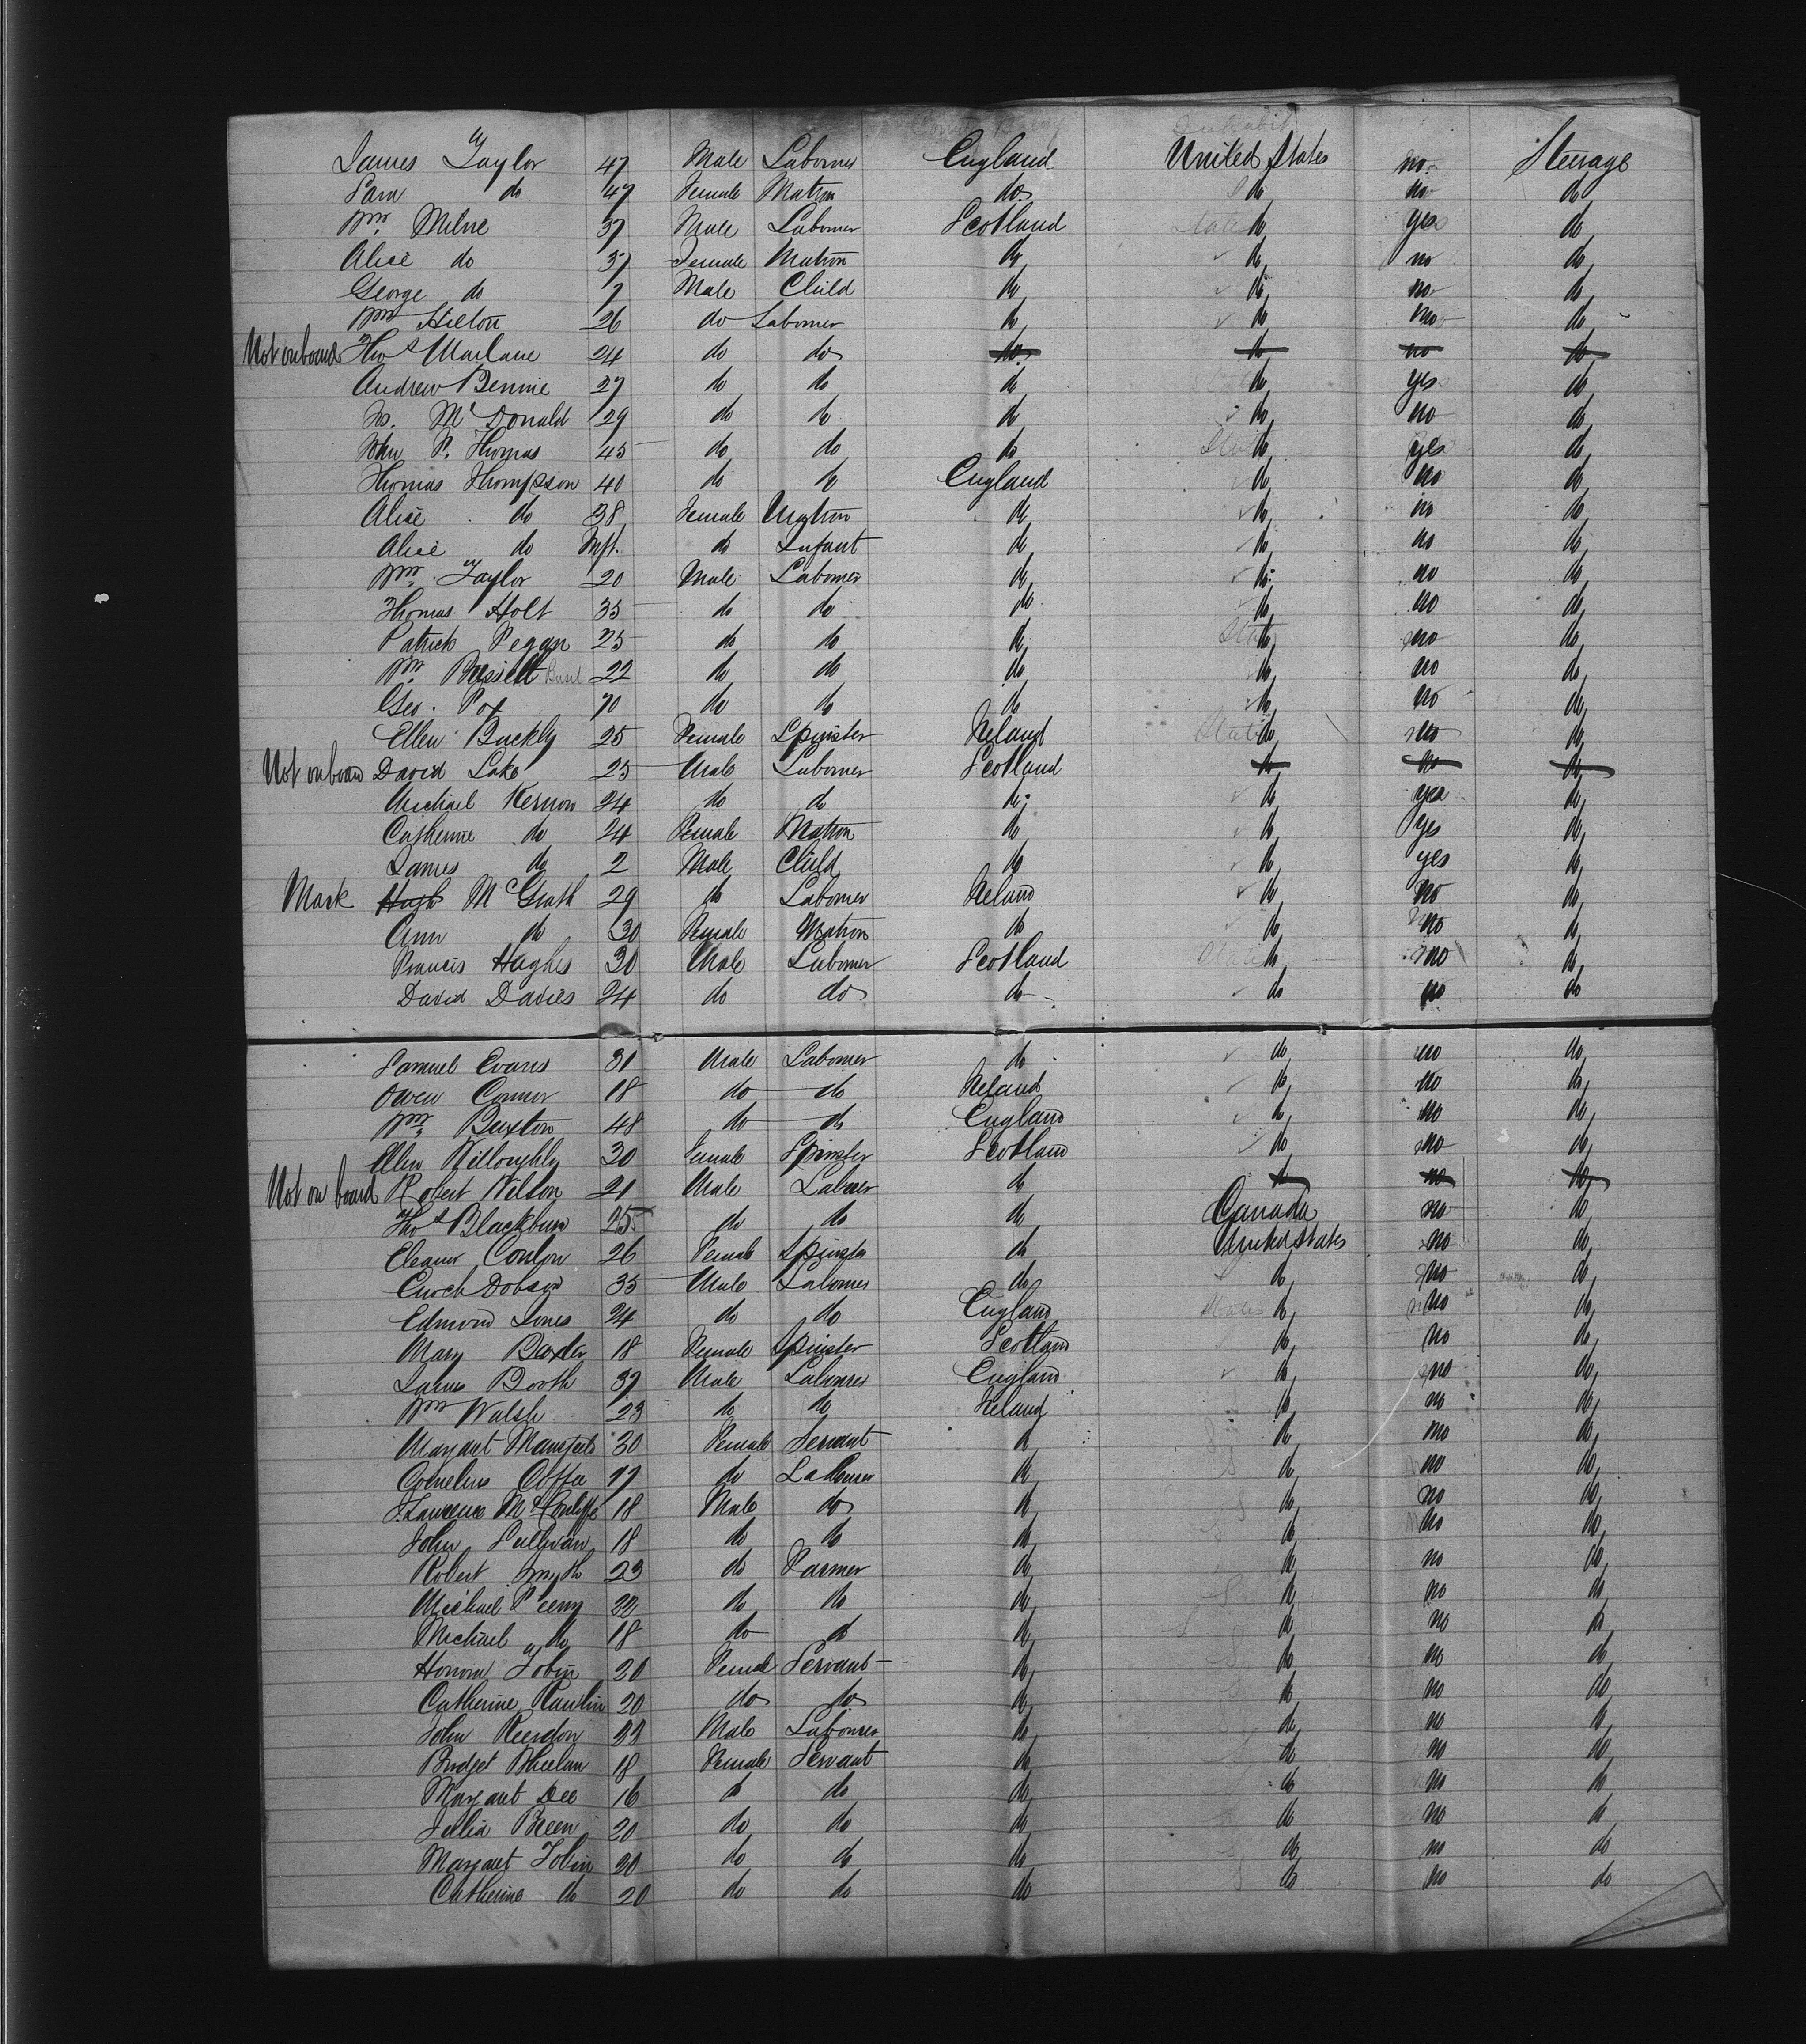 James Taylor 47 Male Labourer England United States no Steerage
Sara do 47 Female Matron do do no do
Wm. Milne 37 Male Labourer Scotland do yes do
Alice do 37 Female Matron do do no do
George do 7 Male Child do do no do
Wm Hilton 26 do Labourer do do no do
Not on board Thos 24 do do do do no do
Andrew Bennie 27 do do do do yes do
Js. McDonald 29 do do do do no do
John P. Thomas 45 do do do do yes do
Thomas Thompson 40 do do England do no do
Alice do 38 Female Matron do do no do
Alice do Inft. do Infant do do no do
Wm. Taylor 20 Male Labourer do do no do
Thomas Holt 35 do do do do no do
Patrick 25 do do do do no do
Wm. 22 do do do do no do
Geo. 70 do do do do no do
Ellen Buckly 25 Female Spinster Ireland do no do
Not on board David Lake 25 Male Labourer Scotland do no do
Michael 24 do do do do yes do
Catherine do 24 Female Matron do do yes do
James do 2 Male Child do do yes do
Mark Hugh McGrath 29 do Labourer Ireland do no do
Ann do 30 Female Matron do do no do
Francis Hughes 30 Male Labourer Scotland do no do
David Davies 24 do do do do no do
Samuel Evans 31 Male Labourer do do no do
Owen Connor 18 do do Ireland do no do
Wm. Buxton 48 do do England do no do
Ellen Willoughby 30 Female Spinster Scotland do no do
Not on board Robert Wilson 21 Male Labourer do do no do
Thos Blackburn 25 do do do Canada no do
Eleanor Conlon 26 Female Spinster do United States no do
Enoch Dobson 35 Male Labourer do do no do
Edmond Jones 24 do do England do no do
Mary Baxter 18 Female Spinster Scotland do no do
James Booth 37 Male Labourer England do no do
Wm Walsh 23 do do Ireland do no do
Margaret Mansfield 30 Female Servant do do no do
Cornelius 17 do Labourer do do no do
Lawrence 18 Male do do do no do
John Sullivan 18 do do do do no do
Robert Smyth 23 do Farmer do do no do
Michael 22 do do do do no do
Michael do 18 do do do do no do
Honora Tobin 20 Female Servant do do no do
Catherine 20 do do do do no do
John Reardon Male Labourer do do no do
Bridget Wheelan 18 Female Servant do do no do
Margaret Dee 16 do do do do no do
Julia Breen 20 do do do do no do
Margaret Tobin 20 do do do do no do
Catherine do 20 do do do do no do